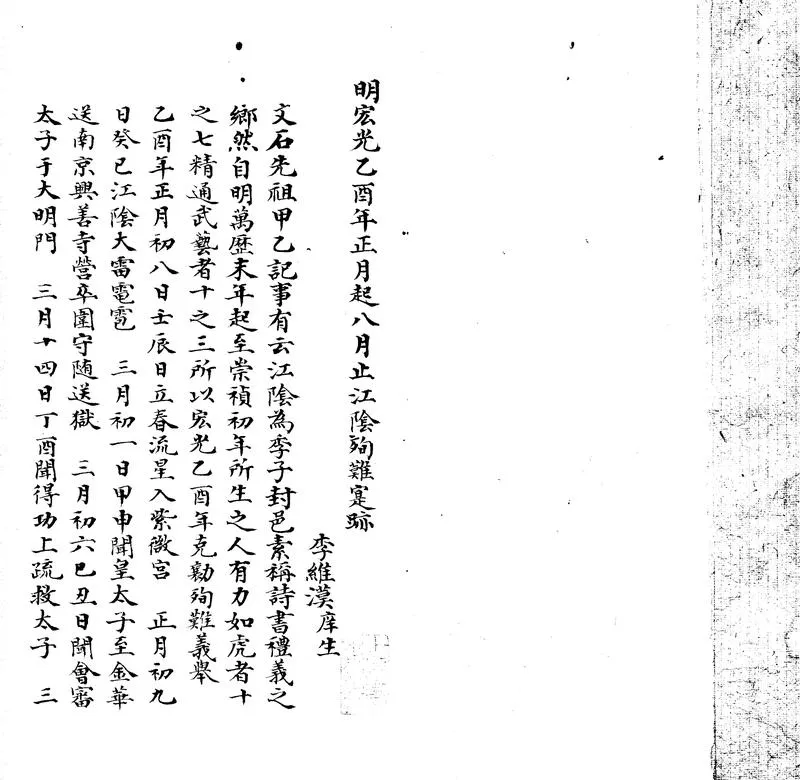 明宏光乙酉年正月起八月止江陰殉難寔跡
李維漢庠生
文石先祖甲乙記事有云江陰為季子封邑素稱詩書禮義之
鄉然自明萬歷末年起至崇禎初年所生之人有力如虎者十
之七精通武藝者十之三所以宏光乙酉年克勷殉難義舉
乙酉年正月初八日壬辰日立春流星入紫微宮 正月初九
日癸巳江陰大雷電雹 三月初一日甲申聞皇太子至金華
送南京興善寺營卒圍守随送獄 三月初六巳丑日聞會審
太子于大明門 三月十四日丁酉聞得功上疏救太子 三